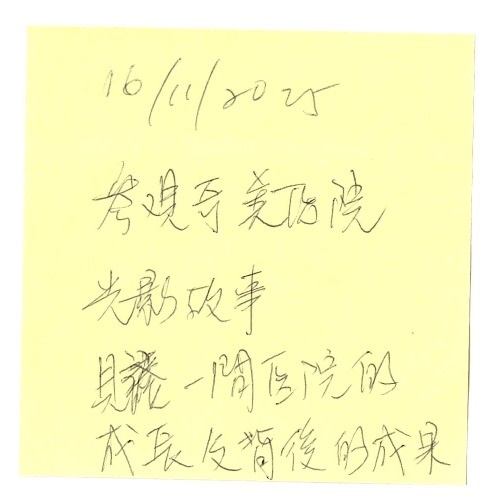 16/11/2025
参观奇美医院
光影故事
見證一間医院的
成長及背後的成果